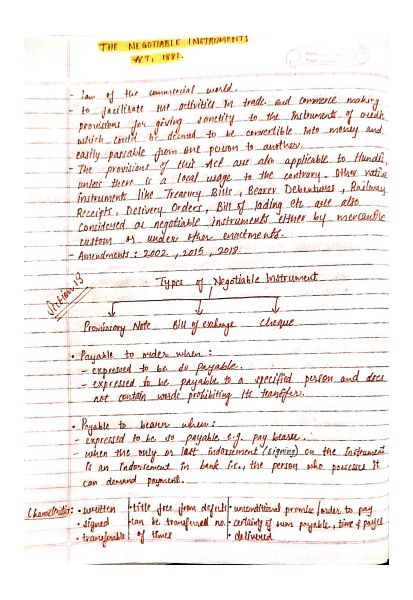 THE NEGOTIABLE INSTRUMENTS
ACT, 1881.
- Law of the commercial world.
- to facilitate the activities in trade and commerce making
provisions for giving sanctity to the instruments of credit
which could be deemed to be convertible into money and
easily passable from one person to another.
- The provisions of this Act are also applicable to Hundis,
unless there is a local usage to the contrary. Other native
instruments like Treasury Bills, Bearer Debentures, Railway
Receipts, Delivery Orders, Bill of lading etc are also
Considered as negotiable instruments either by mercantile
custom or under other enactments.
- Amendments: 2002, 2015, 2018.
Section 13
Types of Negotiable Instrument
Promissory Note Bill of exchange Cheque
• Payable to order when:
- expressed to be so payable.
- expressed to be payable to a specified person and does
not contain words prohibiting its transfer.
• Payable to bearer when:
- expressed to be so payable e.g. pay bearer.
- when the only or last indorsement (signing) on the instrument
is an indorsement in bank i.e., the person who possesses it
can demand payment.
Characteristics: • written • title free from defects • unconditional promise/order to pay
• signed • can be transferred no. • certainty of sum payable, time & payee
• transferable of times • delivered